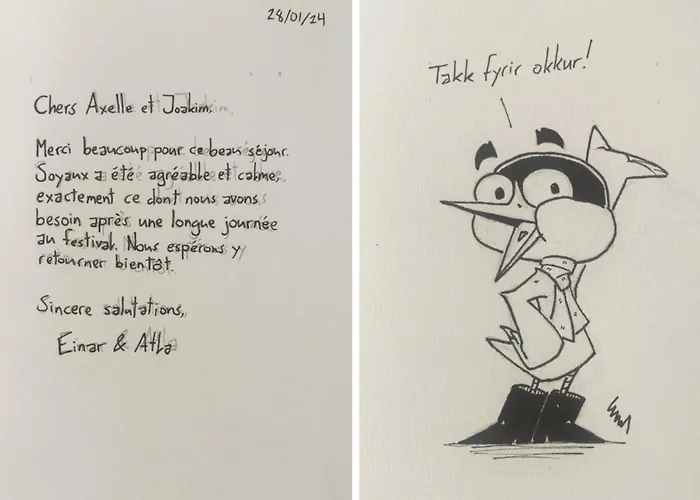 28/01/24
Chers Axelle et Joakim,
Merci beaucoup pour ce beau séjour.
Soyaux a été agréable et calme,
exactement ce dont nous avons
besoin après une longue journée
au festival. Nous espérons y
retourner bientôt.
Sincere salutations,
Einar & Atla
Takk fyrir okkur!